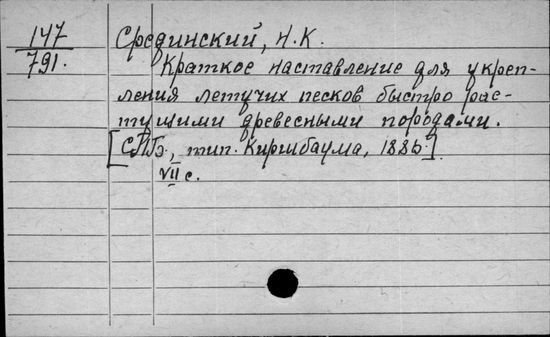 147
791.
Срединский, Н.К.
Краткое наставление для укреп-
ления летучих песков быстро рас-
тущими древесными породами.
[СПБ., тип. Киршбаума, 1886.]
VII с.